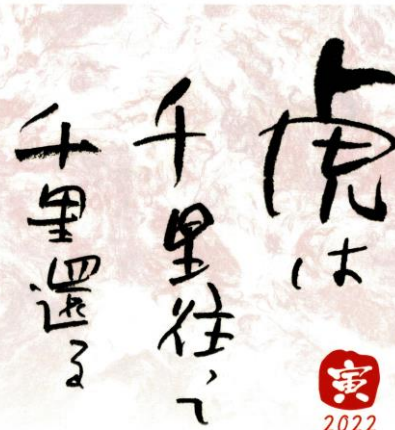 虎は
千里往って
千里還る
寅
2022